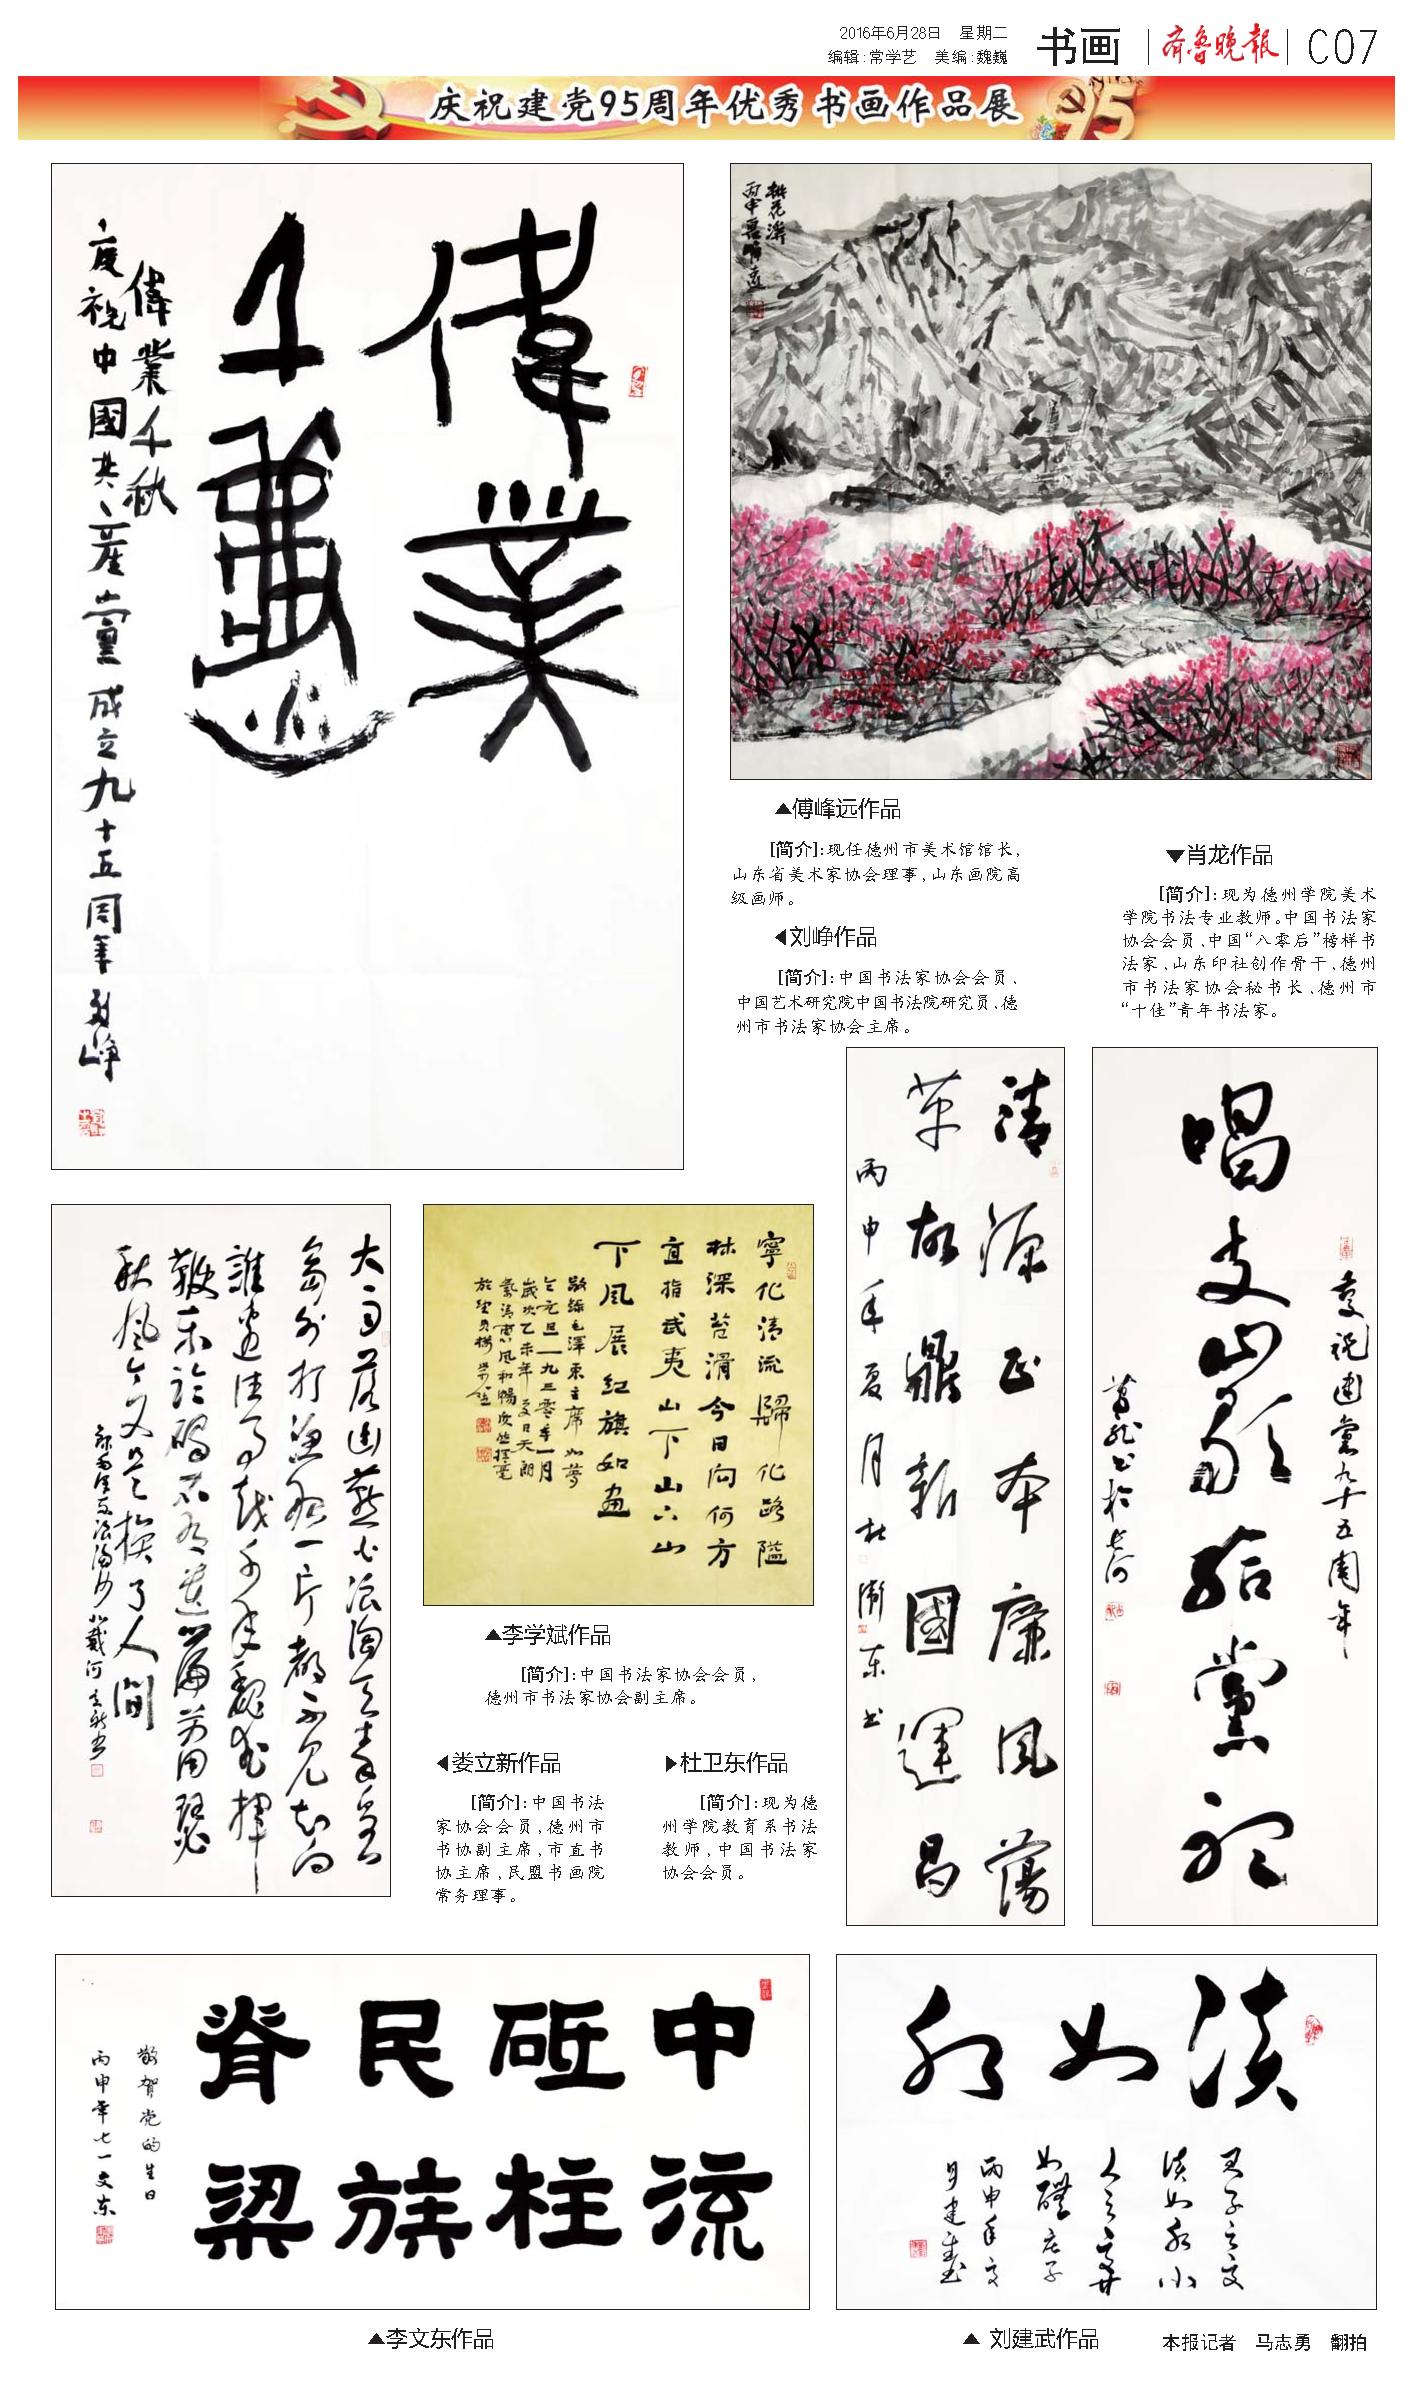 2016年6月28日 星期二
编辑:常学艺 美编:魏巍
书画
齐鲁晚报
C07
庆祝建党95周年优秀书画作品展
偉業
千秋
偉業千秋
慶祝中國共產黨成立九十五周年 劉峥
桃花溪
丙申
▲傅峰远作品
[简介]:现任德州市美术馆馆长,
山东省美术家协会理事,山东画院高
级画师。
◀刘峥作品
[简介]:中国书法家协会会员、
中国艺术研究院中国书法院研究员、德
州市书法家协会主席。
▼肖龙作品
[简介]:现为德州学院美术
学院书法专业教师。中国书法家
协会会员、中国“八零后”榜样书
法家、山东印社创作骨干、德州
市书法家协会秘书长、德州市
“十佳”青年书法家。
大雨落幽燕白浪滔天秦皇
島外打漁船一片都不見知向
誰邊往事越千年魏武揮
鞭東臨碣石有遺篇蕭瑟
秋風今又是換了人間
寧化清流歸化路隘
林深苔滑今日向何方
直指武夷山下山下山
下風展紅旗如畫
敬録毛澤東主席如夢
令元旦一九三零年一月
歲次乙未年夏日天朗
氣清惠風和暢
▲李学斌作品
[简介]:中国书法家协会会员,
德州市书法家协会副主席。
◀娄立新作品
[简介]:中国书法
家协会会员,德州市
书协副主席,市直书
协主席,民盟书画院
常务理事。
▶杜卫东作品
[简介]:现为德
州学院教育系书法
教师,中国书法家
协会会员。
清源正本廉風蕩
革故鼎新國運昌
丙申年夏月杜衛東书
慶祝建黨九十五周年
唱支山歌給黨聽
中流
砥柱
民族
脊梁
敬贺党的生日
丙申年七一文东
▲李文东作品
淡如水
君子之交
淡如水小
人之交甘
如醴 庄子
丙申年夏
月建武
▲ 刘建武作品
本报记者 马志勇 翻拍